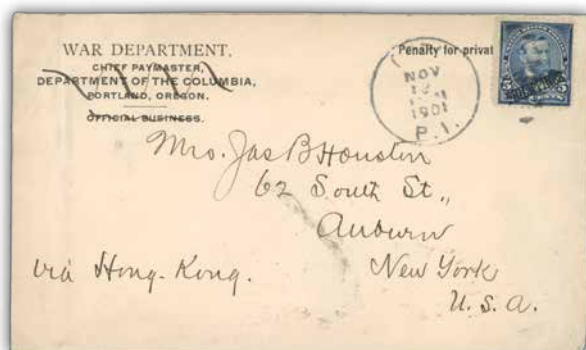 WAR DEPARTMENT,
CHIEF PAYMASTER,
DEPARTMENT OF THE COLUMBIA,
PORTLAND, OREGON.
OFFICIAL BUSINESS.
Penalty for privat
NOV
1901
P.I.
5
Mrs. Jas B Houston
62 South St.,
Auburn
New York
U.S.A.
via Hong-Kong.